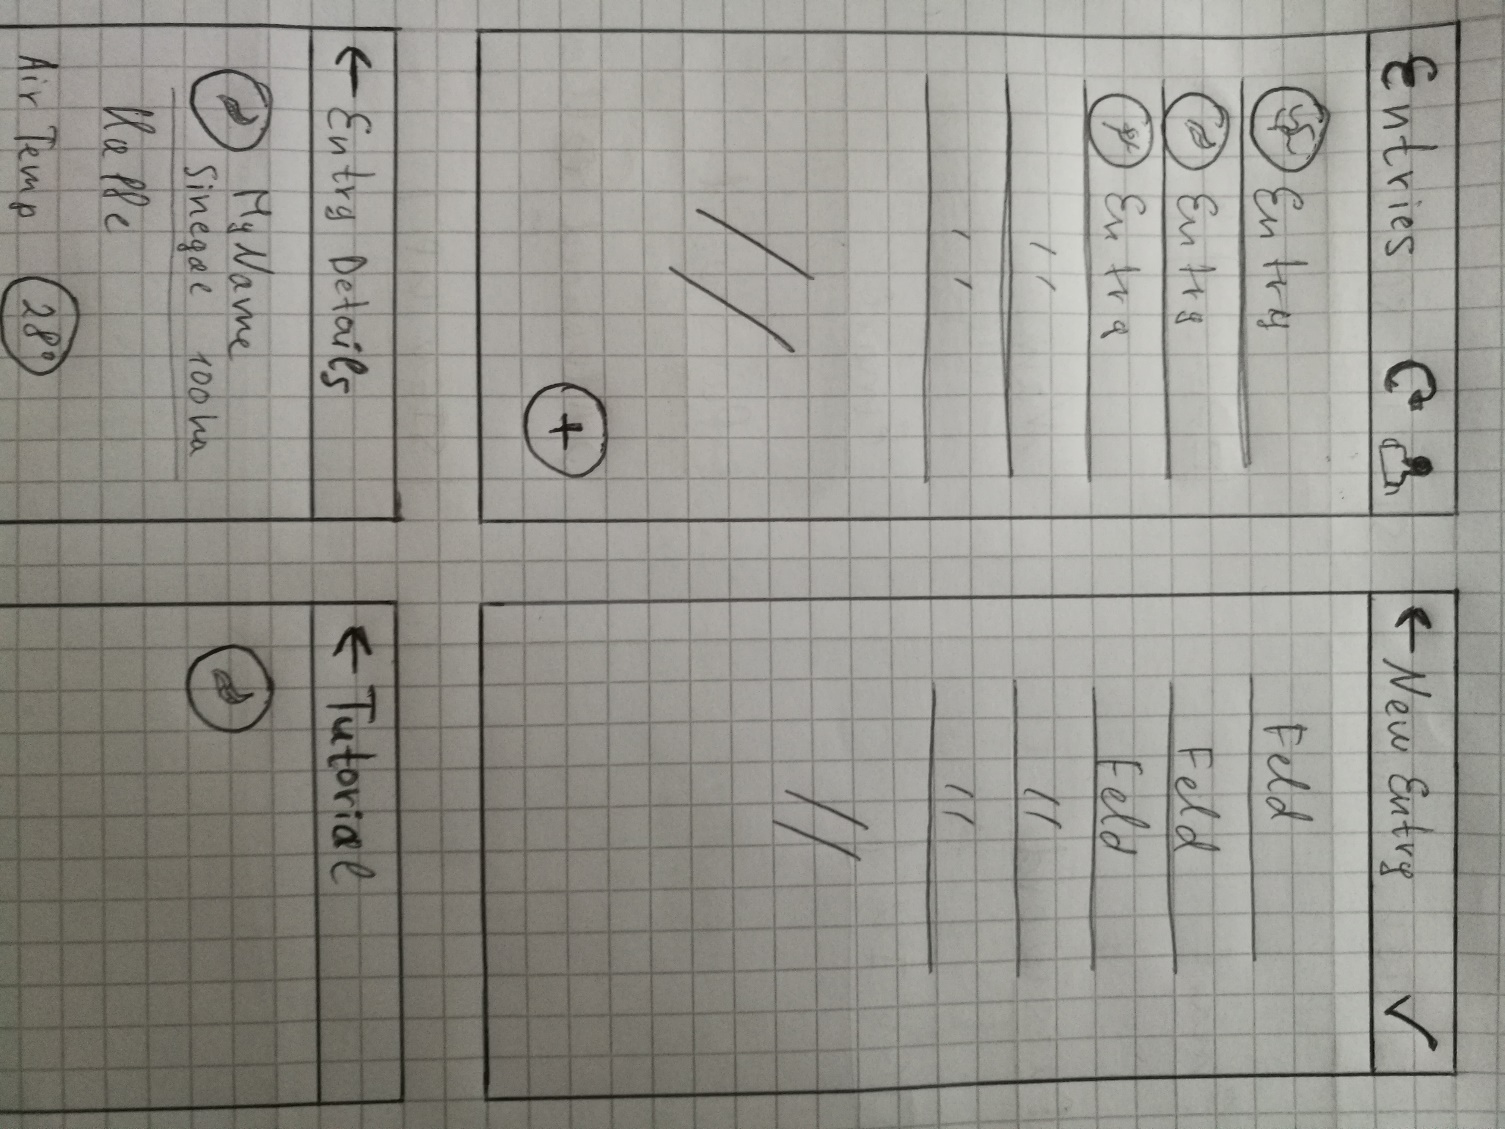 Entries
Entry
Entry
Entry
" 
"
//
+
← New Entry ✓
Feld
Feld
Feld
"
"
//
← Entry Details
My Name
Sinegal 100ha
Kaffe
Air Temp 28°
← Tutorial